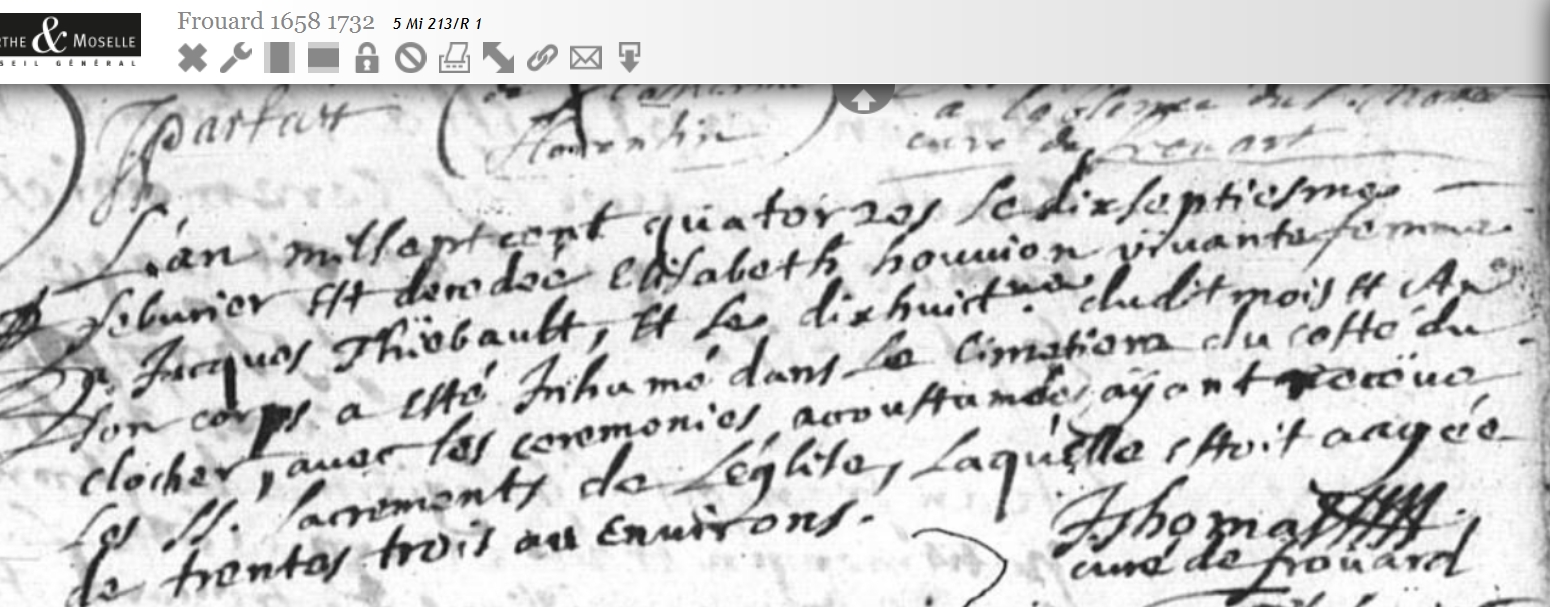 RTHE & MOSELLE
SEIL GÉNÉRAL
Frouard 1658 1732 5 Mi 213/R 1
partait
florentin
cure de frouart
L'an mil sept cent quatorzes le dixseptiesmes
feburier Est decedée Elisabeth houuion viuante femme
De Jacques Thïebault, Et les dixhuict.me dudit mois Et An
Son corps a esté Inhumé dans le Cimetiere du costé du
clocher, auec les ceremonies acoustumées aÿant receüe
Les SS. sacrements de L'église, Laquelle estoit aagée
de trentes trois au Enuirons.
Thomas
curé de froüard